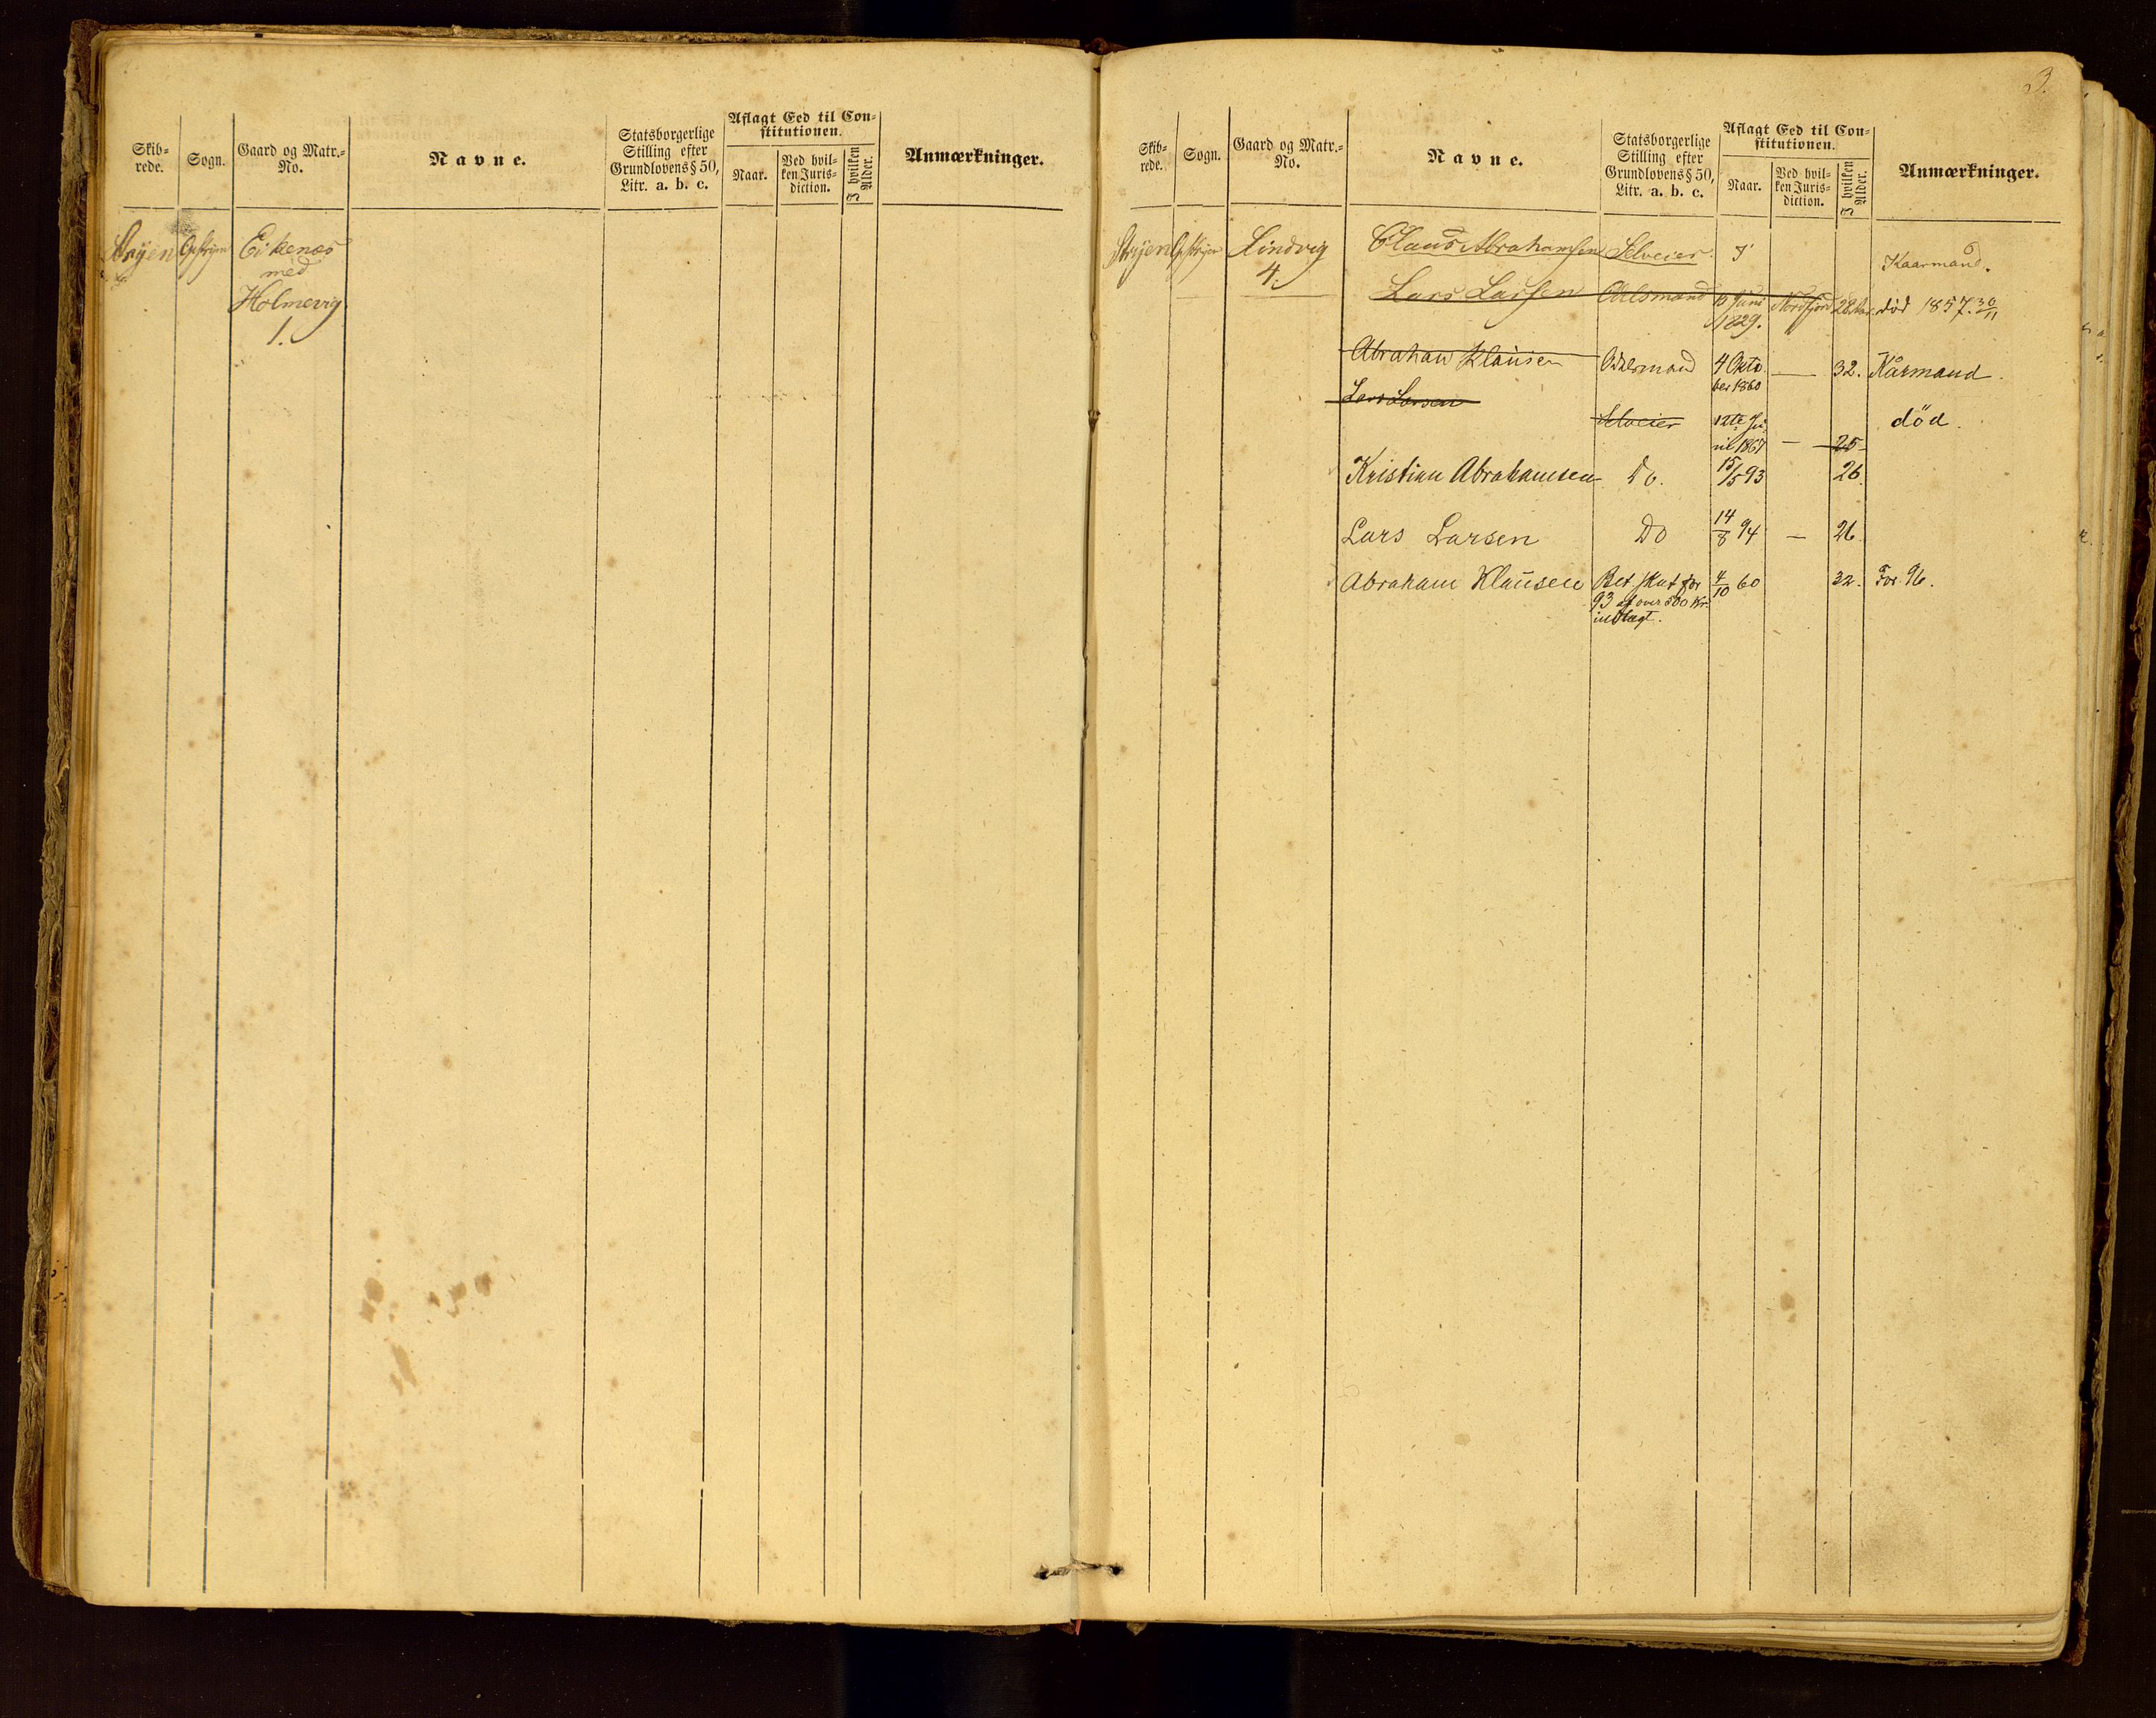 Skib-
rede.
Sogn.
Gaard og Matr.-
No.
Navne.
Statsborgerlige
Stilling efter
Grundlovens § 50,
Litr. a. b. c.
Aflagt Eed til Con-
stitutionen.
Naar.
Ved hvil-
ken Juris-
diction.
I hvilken
Alder.
Anmærkninger.
Stryen Opstryen Eikenæs
med
Holmevig
1.
3.
Skib-
rede.
Sogn.
Gaard og Matr.-
No.
Navne.
Statsborgerlige
Stilling efter
Grundlovens § 50,
Litr. a. b. c.
Aflagt Eed til Con-
stitutionen.
Naar.
Ved hvil-
ken Juris-
diction.
I hvilken
Alder.
Anmærkninger.
Stryen Opstryen Lindvig Claus Abrahamsen Selveier. Kaarmand.
4.
Lars Larsen Odelsmand Juni Nordfjord 28 Aar. död 1857. 30/11
1829.
Abraham Klausen Odelsmand 4 Okto — 32. Kårmand.
ber 1860
Lars Larsen
Selveier 12te — 25 död.
1867
Kristian Abrahamsen Do. 15/5 93 26.
Lars Larsen Do 14/8 94 — 26.
Abraham Klausen Bet. skat for 4/10 60 32. For 96.
93 af over 500 Kr.
indtægt.